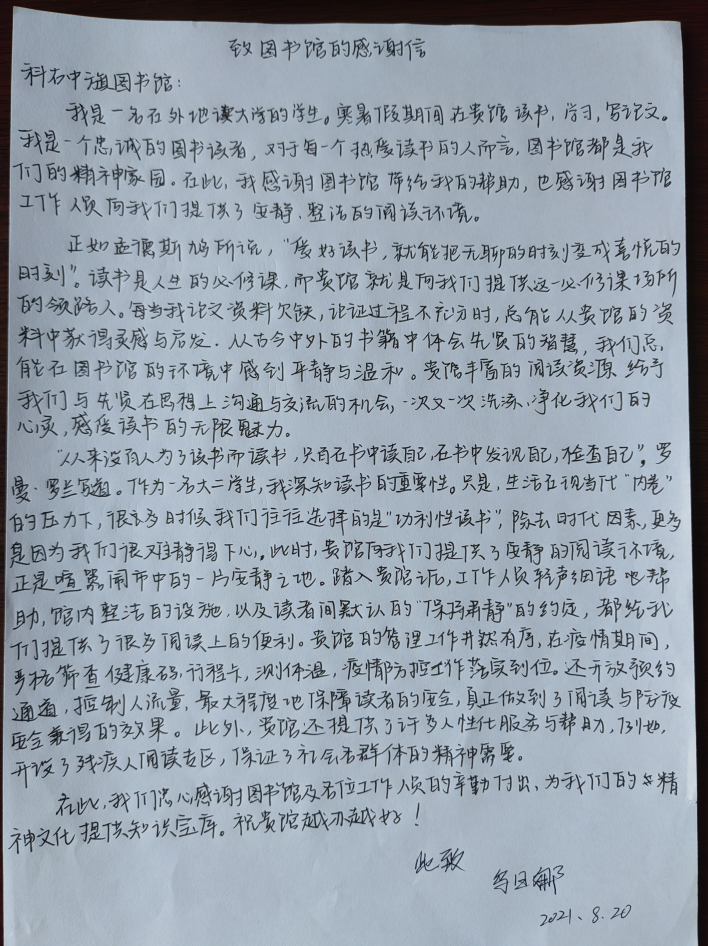 致图书馆的感谢信
科右中旗图书馆：
我是一名在外地读大学的学生。寒暑假期间在贵馆读书，学习，写论文。
我是一个忠诚的图书读者，对于每一个热爱读书的人而言，图书馆都是我
们的精神家园。在此，我感谢图书馆带给我的帮助，也感谢图书馆
工作人员向我们提供了安静、整洁的阅读环境。
正如孟德斯鸠所说，“爱好读书，就能把无聊的时刻变成喜悦的
时刻”。读书是人生的必修课，而贵馆就是向我们提供这一必修课场所
的领路人。每当我论文资料欠缺，论证过程不充分时，总能从贵馆的资
料中获得灵感与启发，从古今中外的书籍中体会先贤的智慧，我们总
能在图书馆的环境中感到平静与温和。贵馆丰富的阅读资源给予
我们与先贤在思想上沟通与交流的机会，一次又一次洗涤、净化我们的
心灵，感受读书的无限魅力。
“从来没有人为了读书而读书，只有在书中读自己，在书中发现自己，检查自己”，罗
曼·罗兰写道。作为一名大二学生，我深知读书的重要性。只是，生活在现当代“内卷”
的压力下，很多时候我们往往选择的是“功利性读书”，除去时代因素，更多
是因为我们很难静得下心。此时，贵馆向我们提供了安静的阅读环境，
正是喧嚣闹市中的一片安静之地。踏入贵馆之后，工作人员轻声细语地帮
助，馆内整洁的设施，以及读者间默认的“保持肃静”的约定，都给我
们提供了很多阅读上的便利。贵馆的管理工作井然有序，在疫情期间，
严格筛查健康码，行程卡，测体温，疫情防控工作落实到位。还开放预约
通道，控制人流量，最大程度地保障读者的安全，真正做到了阅读与防疫
安全兼得的效果。此外，贵馆还提供了许多人性化服务与帮助，例如，
开设了残疾人阅读专区，保证了社会各群体的精神需要。
在此，我们忠心感谢图书馆及各位工作人员的辛勤付出，为我们的精
神文化提供知识宝库。祝贵馆越办越好！
此致
乌日娜
2021.8.20